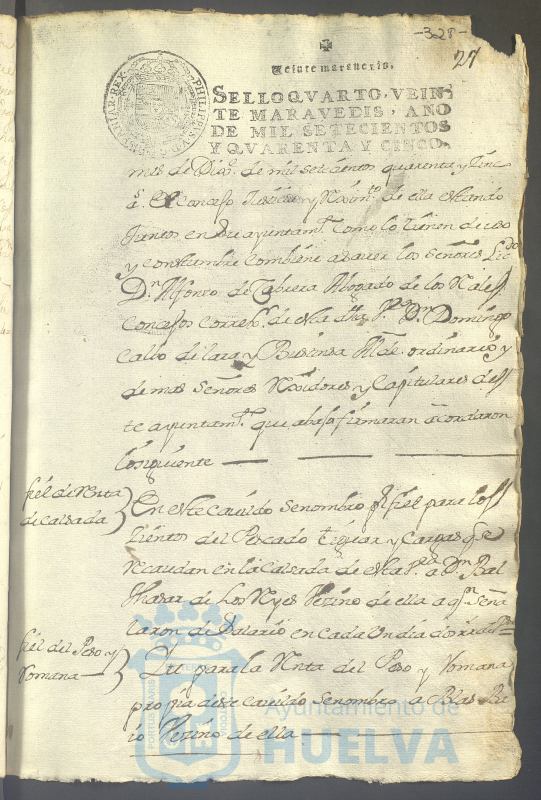 -328-
27
Veinte maravedis.
SELLO QVARTO, VEIN-
TE MARAVEDIS, AÑO
DE MIL SETECIENTOS
Y QVARENTA Y CINCO.
mes de Diz.e de mil setecientos quarenta y cinc
a.s El Concejo Justicia y Reximto de ella estando
Juntos en su ayuntamto Como lo tienen de uso
y constumbre Combiene a saver los Señores Licdo
Dn Alfonso de Cabrera Abogado de los Reales
Concejos Correxr de esta dha Va Dn Domingo
Calvo de lara y Alcde ordinario y
de mas Señores Rexidores y Capitulares des
te ayuntamto que abajo firmaran acordaron
lo siguiente
fiel de Renta
de calsada
En este Cavildo Se nombro pr fiel para los
del Pescado y Cargas qe se
Recaudan en la Calsada de esta Va a Dn Bal
thasar de los Reyes Vezino de ella a qn Seña
laron de Salario en cada Un dia dos Rs de Von
fiel del Peso y
Romana
Qe para la Renta del Peso y Romana
propia deste Cavildo Se nombro a Blas Ru
io Vezino de ella
Ayuntamiento de
HUELVA